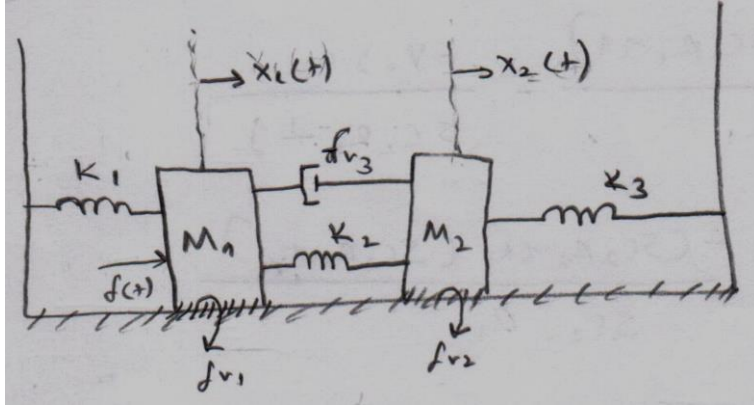 x₁(t) x₂(t)
K₁ fv₃ K₃
M₁ K₂ M₂
f(t)
fv₁ fv₂